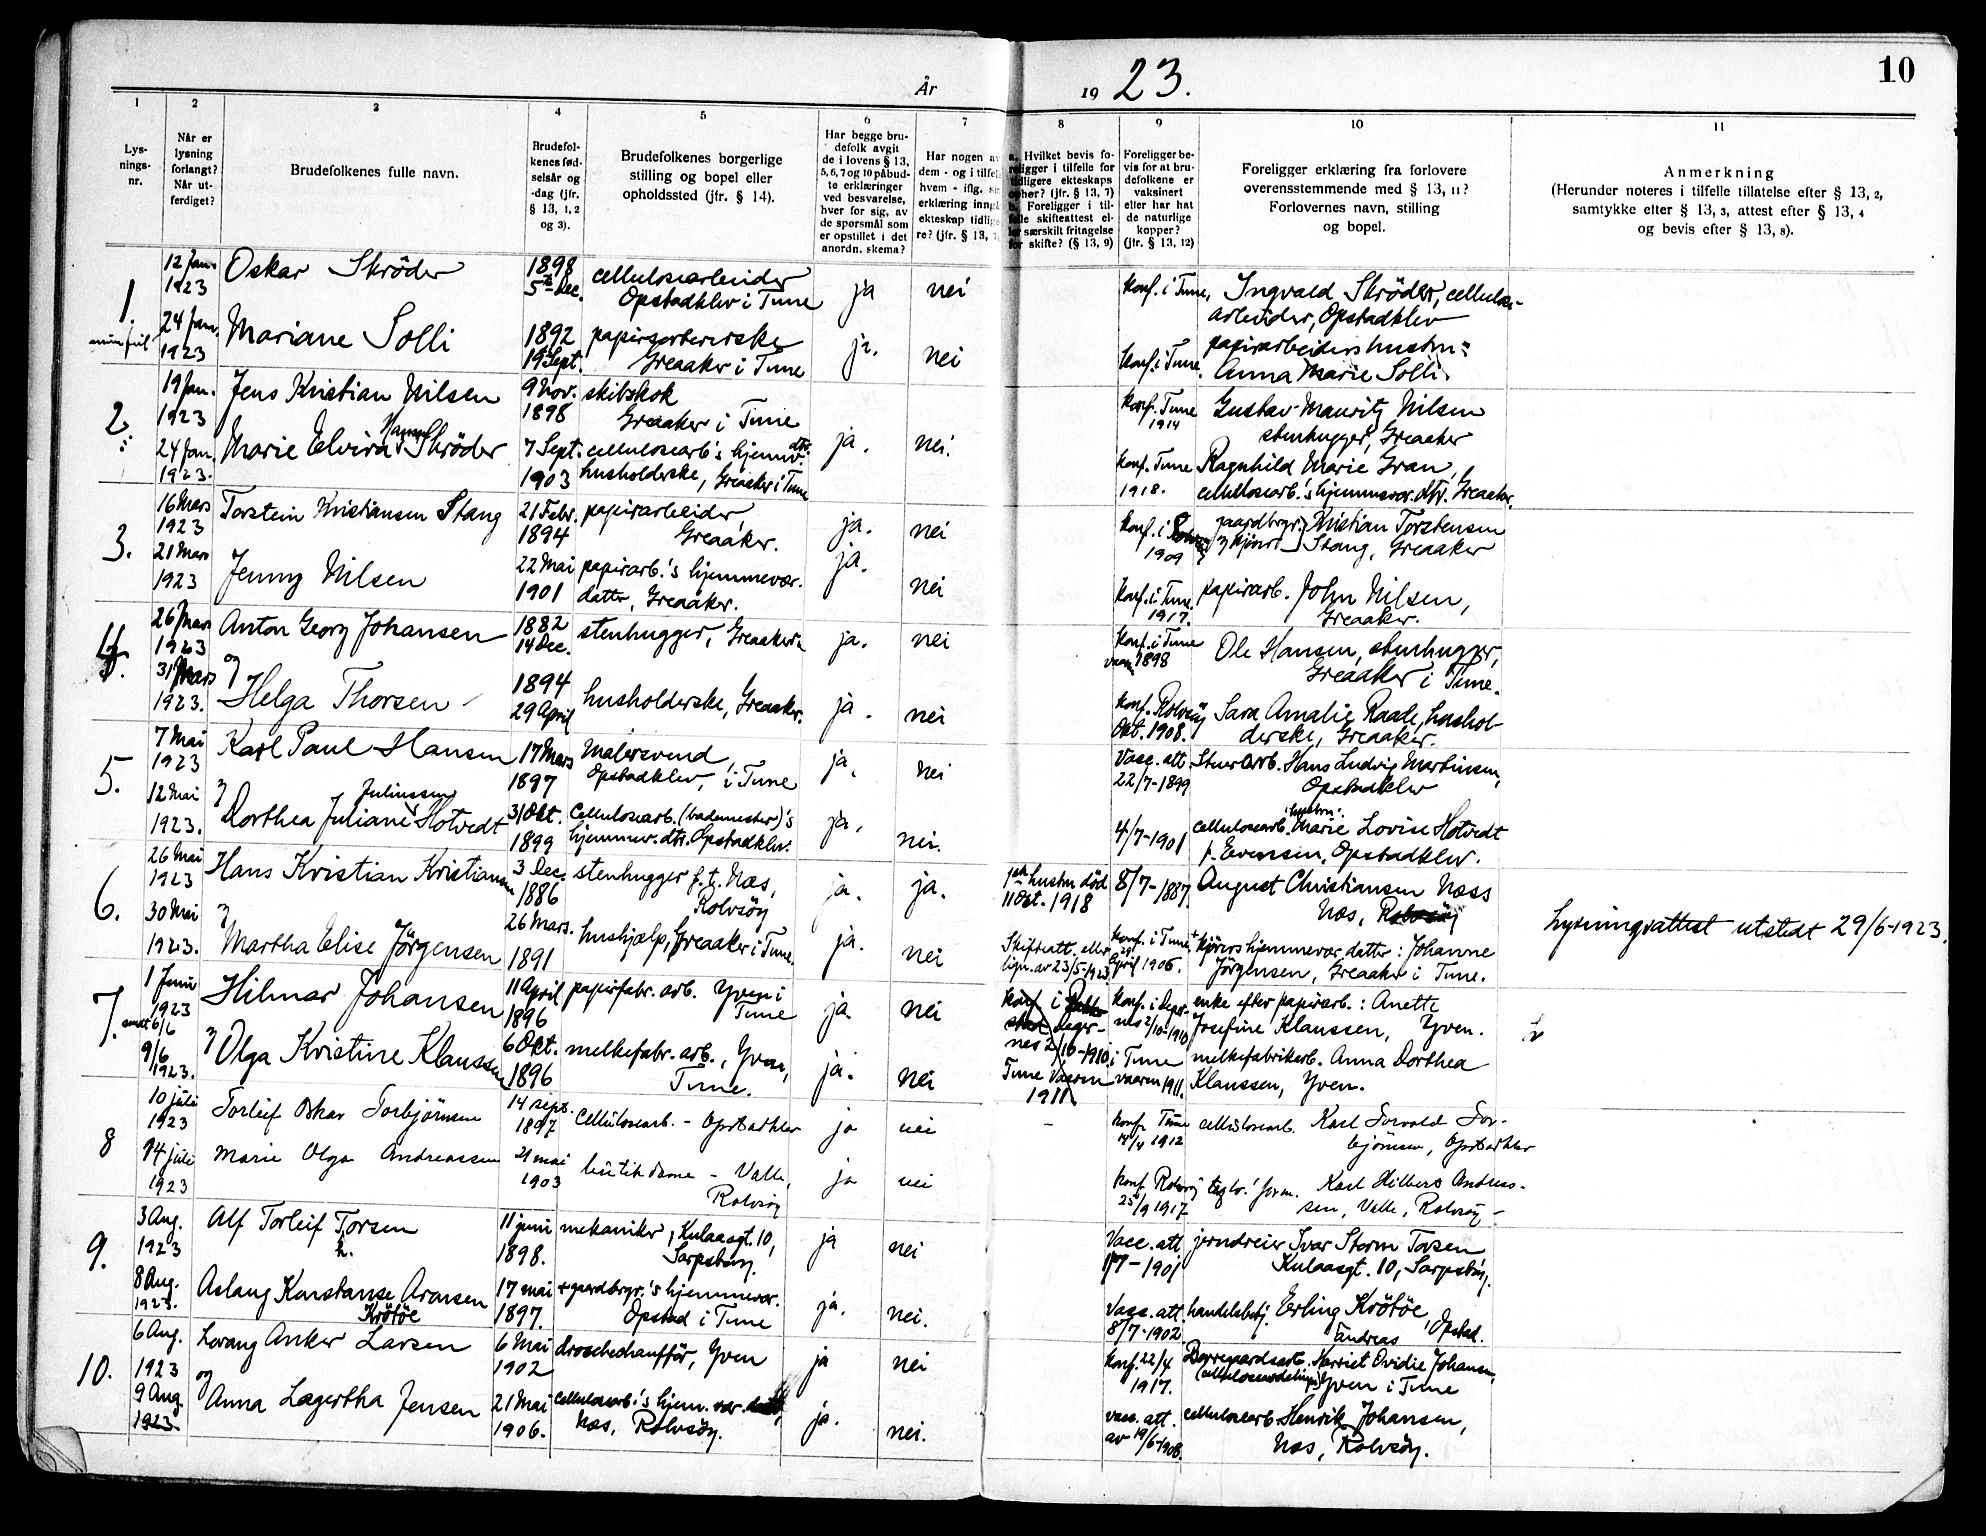 År 1923.
10
1
2
3
4
5
6
7
8
9
10
11
Lys-
nings-
nr.
Når er
lysning
forlangt?
Når ut-
ferdiget?
Brudefolkenes fulle navn.
Brudefol-
kenes fød-
selsår og
-dag (jfr.
§ 13, 1, 2
og 3).
Brudefolkenes borgerlige
stilling og bopel eller
opholdssted (jfr. § 14).
Har begge bru-
defolk avgit
de i lovens § 13,
5, 6, 7 og 10 påbud-
te erklæringer
ved besvarelse,
hver for sig, av
de spørsmål som
er opstillet i det
anordn. skema?
Har nogen av
dem - og i tilfelle
hvem - iflg.
erklæring inngå
ekteskap tidlige
re? (jfr. § 13, 7)
a. Hvilket bevis fo-
religger i tilfelle for
tidligere ekteskaps
ophør? (jfr. § 13, 7)
b. Foreligger i til-
felle skifteattest el-
ler særskilt fritagelse
for skifte? (§ 13, 9)
Foreligger be-
vis for at bru-
defolkene er
vaksinert
eller har hat
de naturlige
kopper?
(jfr. § 13, 12)
Foreligger erklæring fra forlovere
overensstemmende med § 13, 11?
Forlovernes navn, stilling
og bopel.
Anmerkning
(Herunder noteres i tilfelle tillatelse efter § 13, 2,
samtykke efter § 13, 3, attest efter § 13, 4
og bevis efter § 13, 8).
1.
12 Jan.
1923
Oskar Skröder
1898
5te Dec.
cellulosearbeider
Opstadklev i Tune
ja
nei
konf. i Tune,
Ingvald Skröder, cellulose-
arbeider, Opstadklev
24 Jan.
1923
Mariane Solli
1892
19 Sept.
papirarbeiderske
Greaaker i Tune
ja.
nei
konf. i Tune.
papirarbeiders hustru:
Anna Marie Solli.
2
19 Jan.
1923
Jens Kristian Nilsen
9 Nov.
1898
skibskok
Greaaker i Tune
konf. Tune
1914
Gustav Mauritz Nilsen
stenhugger, Greaaker
24 Jan.
1923.
Marie Elvira Skröder
7 Sept.
1903
cellulosearb's hjemmv. dtr.
husholderske, Greaaker i Tune
ja.
nei.
konf. Tune
1918.
Ragnhild Marie Gran,
cellulosearb.'s hjemmevær. dtr. Greaaker.
3.
16 Mars
1923
Torstein Kristiansen Stang
21 Febr.
1894
papirarbeider,
Greaaker.
ja.
nei
konf. i
1909
gaardbrgr. Kristian Torstensen
Stang, Greaaker
21 Mars
1923
Jenny Nilsen
22 Mai
1901
papirarb.'s hjemmevær.
datter, Greaaker.
ja.
nei
konf. i Tune
1917.
papirarb. John Nilsen,
Greaaker.
4.
26 Mars
1923
Anton Georg Johansen
og
1882
14 Dec.
stenhugger, Greaaker
ja.
nei
konf. i Tune
vaaren 1898
Ole Hansen, stenhugger,
Greaaker i Tune.
31 Mars
1923.
Helga Thorsen
1894
29 April
husholderske, Greaaker.
ja.
nei
konf. Rolvsöy
Okt. 1908.
Sara Amalie Raade, hushol-
derske, Greaaker.
5.
7 Mai
1923
Karl Paul Hansen
17 Mars
1897
Malersvend,
Opstadklev, i Tune
ja.
nei
Vacc. att
22/7-1899
Stuerarb. Hans Ludvig Martinsen,
Opstadklev
12 Mai
1923.
Juliussen
Dorthea Juliane Hotvedt
31 Okt.
1899
cellulosearb. (bademester)'s
hjemmev. dtr. Opstadklev.
ja.
nei.
4/7-1901
cellulosearb. hustru: Marie Lovise Hotvedt
f. Evensen, Opstadklev.
6.
26 Mai
1923
Hans Kristian Kristiansen
3 Dec.
1886
stenhugger p.t. Næs,
Rolvsöy
ja.
ja.
1ste hustru död
11 Okt. 1918
8/7-1887.
August Christiansen Næss
Næs, Rolvsöy
Lysningsattest utstedt 29/6-1923.
30 Mai
1923.
Martha Elise Jörgensen
26 Mars.
1891
hushjælp, Greaaker i Tune.
ja.
nei
Skifteatt. eller
lign. av 23/5-1923
konf. i Tune
29 April 1906.
kjörers hjemmevær. datter: Johanne
Jörgensen, Greaaker i Tune.
7.
1 Juni
1923
Hilmar Johansen
11 April
1896
papirfabr. arb. Yven i
Tune
ja.
nei
konf. i
Deger-
nes 2/10-1910
Tune Vaaren
1911.
konf. i Deger-
nes 2/10-1910
enke efter papirarb.: Anette
Josefine Klaussen, Yven.
6/6
9/6
1923.
Olga Kristine Klaussen
6 Okt.
1896
melkefabr. arb., Yven,
Tune.
ja.
nei
i Tune
vaaren 1911.
melkefabrikarb. Anna Dorthea
Klaussen, Yven.
8
10 juli
1923
Torleif Oskar Torbjörnsen
14 sept.
1897
Cellulosearb. - Opstadklev
ja
nei
-
konf. Tune
14/4 1912
cellulosearb. Karl Torvald Tor-
björnsen, Opstadklev
14 juli
1923
Marie Olga Andreassen
21 mai
1903
butikdame - Valle,
Rolvsöy
ja
nei
konf Rolvsöy
25/9 1917
teglv. form. Karl Hilbert Andreas-
sen, Valle, Rolvsöy -
9.
3 Aug.
1923
Alf Torleif Torsen
h.
11 juni
1898.
mekaniker, Kulaasgt. 10,
Sarpsborg.
ja
nei
Vacc. att
1/7-1901
jerndreier Ivar Storm Torsen
Kulaasgt. 10, Sarpsborg.
8 Aug.
1923.
Aslaug Konstanse Aronsen
Krötöe
17 mai
1897.
gaardbrgr.'s hjemmevær.
Opstad i Tune
ja.
nei.
Vacc. att.
8/7-1902.
handelsbetj. Erling Krötöe
Andreas, Opstad.
10.
6 Aug.
1923
Lorang Anker Larsen
og
6 Mai
1902
droschechaufför, Yven
ja
nei
konf. 22/4
1917.
Borregaardsarb. Harriet Ovidie Johansen,
Yven i Tune
9 Aug
1923.
Anna Lagertha Jensen
21 Mai
1906.
cellulosearb.'s hjem. vær.
Næs, Rolvsöy.
ja.
nei.
vacc. att.
av 19/6-1908.
cellulosearb. Henrik Johansen,
Næs, Rolvsöy.